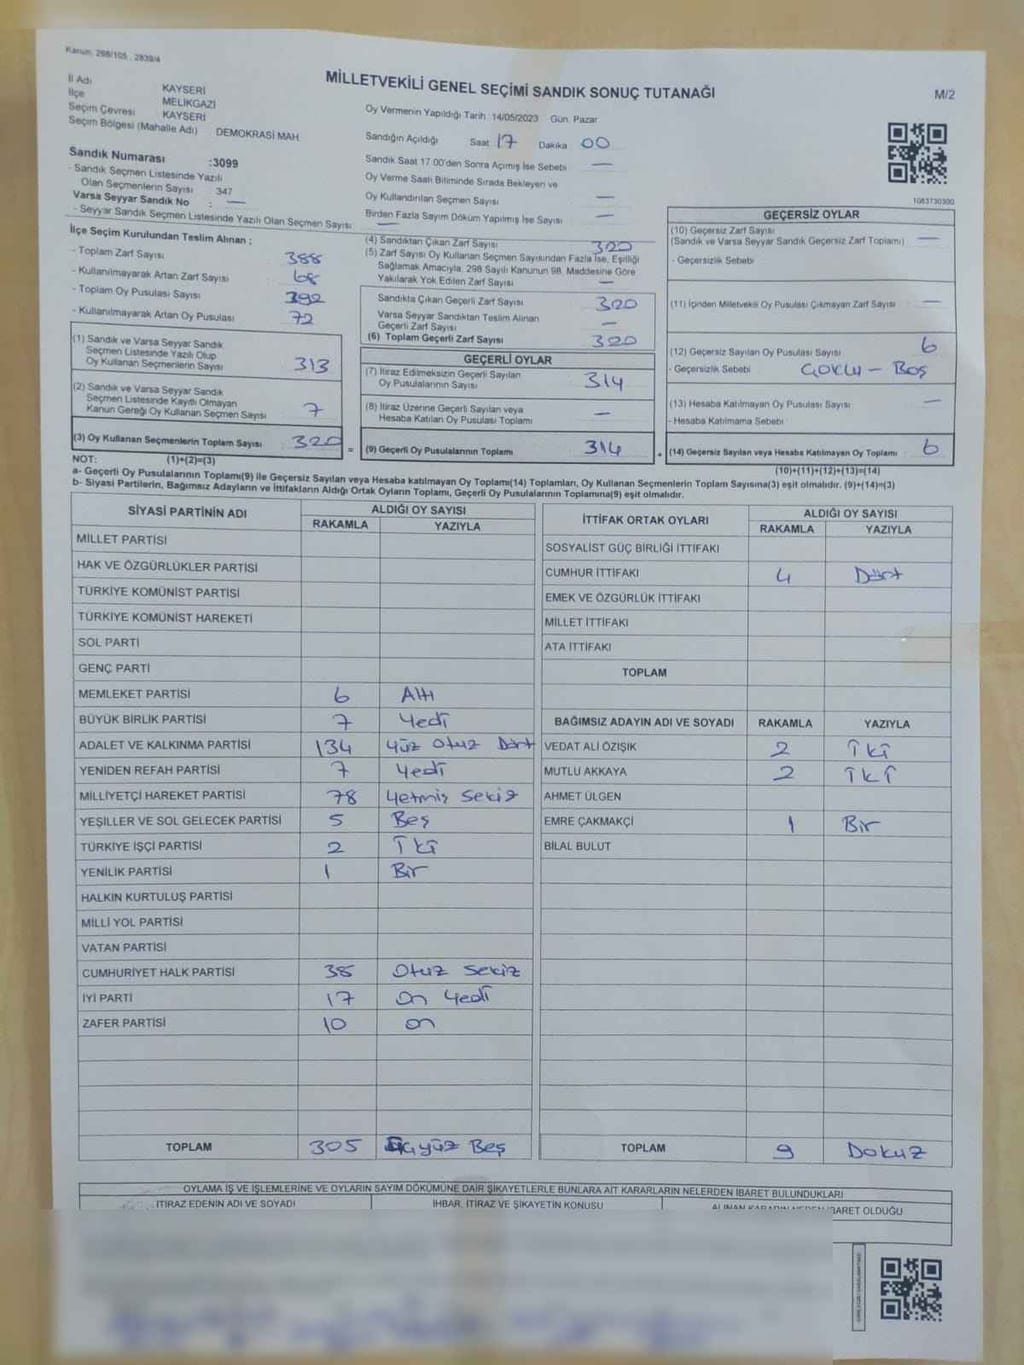 Kanun. 298/105 , 2839/4
MİLLETVEKİLİ GENEL SEÇİMİ SANDIK SONUÇ TUTANAĞI
M/2
İl Adı KAYSERİ
İlçe MELİKGAZİ
Seçim Çevresi KAYSERİ
Seçim Bölgesi (Mahalle Adı) DEMOKRASİ MAH
Sandık Numarası :3099
- Sandık Seçmen Listesinde Yazılı
Olan Seçmenlerin Sayısı 347
Varsa Seyyar Sandık No : —
- Seyyar Sandık Seçmen Listesinde Yazılı Olan Seçmen Sayısı: —
Oy Vermenin Yapıldığı Tarih: 14/05/2023 Gün. Pazar
Sandığın Açıldığı Saat 17 Dakika 00
Sandık Saat 17.00'den Sonra Açımış İse Sebebi —
Oy Verme Saati Bitiminde Sırada Bekleyen ve
Oy Kullandırılan Seçmen Sayısı —
Birden Fazla Sayım Döküm Yapılmış İse Sayısı —
1083730300
İlçe Seçim Kurulundan Teslim Alınan :
- Toplam Zarf Sayısı 388
- Kullanılmayarak Artan Zarf Sayısı 68
- Toplam Oy Pusulası Sayısı 392
- Kullanılmayarak Artan Oy Pusulası 72
(1) Sandık ve Varsa Seyyar Sandık
Seçmen Listesinde Yazılı Olup
Oy Kullanan Seçmenlerin Sayısı 313
(2) Sandık ve Varsa Seyyar Sandık
Seçmen Listesinde Kayıtlı Olmayan
Kanun Gereği Oy Kullanan Seçmen Sayısı 7
(3) Oy Kullanan Seçmenlerin Toplam Sayısı 320 =
(4) Sandıktan Çıkan Zarf Sayısı 320
(5) Zarf Sayısı Oy Kullanan Seçmen Sayısından Fazla İse, Eşitliği
Sağlamak Amacıyla, 298 Sayılı Kanunun 98. Maddesine Göre
Yakılarak Yok Edilen Zarf Sayısı —
Sandıkta Çıkan Geçerli Zarf Sayısı 320
Varsa Seyyar Sandıktan Teslim Alınan
Geçerli Zarf Sayısı —
(6) Toplam Geçerli Zarf Sayısı 320
GEÇERLİ OYLAR
(7) İtiraz Edilmeksizin Geçerli Sayılan
Oy Pusulalarının Sayısı 314
(8) İtiraz Üzerine Geçerli Sayılan veya
Hesaba Katılan Oy Pusulası Toplamı —
(9) Geçerli Oy Pusulalarının Toplamı 314
GEÇERSİZ OYLAR
(10) Geçersiz Zarf Sayısı
(Sandık ve Varsa Seyyar Sandık Geçersiz Zarf Toplamı) —
- Geçersizlik Sebebi
(11) İçinden Milletvekili Oy Pusulası Çıkmayan Zarf Sayısı —
(12) Geçersiz Sayılan Oy Pusulası Sayısı 6
- Geçersizlik Sebebi ÇOKLU - BOŞ
(13) Hesaba Katılmayan Oy Pusulası Sayısı —
- Hesaba Katılmama Sebebi
(14) Geçersiz Sayılan veya Hesaba Katılmayan Oy Toplamı 6
NOT: (1)+(2)=(3)
(10)+(11)+(12)+(13)=(14)
a- Geçerli Oy Pusulalarının Toplamı(9) ile Geçersiz Sayılan veya Hesaba katılmayan Oy Toplam(14) Toplamları, Oy Kullanan Seçmenlerin Toplam Sayısına(3) eşit olmalıdır. (9)+(14)=(3)
b- Siyasi Partilerin, Bağımsız Adayların ve İttifakların Aldığı Ortak Oyların Toplamı, Geçerli Oy Pusulalarının Toplamına(9) eşit olmalıdır.
SİYASİ PARTİNİN ADI ALDIĞI OY SAYISI
RAKAMLA YAZIYLA
MİLLET PARTİSİ
HAK VE ÖZGÜRLÜKLER PARTİSİ
TÜRKİYE KOMÜNİST PARTİSİ
TÜRKİYE KOMÜNİST HAREKETİ
SOL PARTİ
GENÇ PARTİ
MEMLEKET PARTİSİ 6 Altı
BÜYÜK BİRLİK PARTİSİ 7 Yedi
ADALET VE KALKINMA PARTİSİ 134 Yüz Otuz Dört
YENİDEN REFAH PARTİSİ 7 Yedi
MİLLİYETÇİ HAREKET PARTİSİ 78 Yetmiş Sekiz
YEŞİLLER VE SOL GELECEK PARTİSİ 5 Beş
TÜRKİYE İŞÇİ PARTİSİ 2 İki
YENİLİK PARTİSİ 1 Bir
HALKIN KURTULUŞ PARTİSİ
MİLLİ YOL PARTİSİ
VATAN PARTİSİ
CUMHURİYET HALK PARTİSİ 38 Otuz Sekiz
İYİ PARTİ 17 On Yedi
ZAFER PARTİSİ 10 on
TOPLAM 305 Üçyüz Beş
İTTİFAK ORTAK OYLARI ALDIĞI OY SAYISI
RAKAMLA YAZIYLA
SOSYALİST GÜÇ BİRLİĞİ İTTİFAKI
CUMHUR İTTİFAKI 4 Dört
EMEK VE ÖZGÜRLÜK İTTİFAKI
MİLLET İTTİFAKI
ATA İTTİFAKI
TOPLAM
BAĞIMSIZ ADAYIN ADI VE SOYADI RAKAMLA YAZIYLA
VEDAT ALİ ÖZIŞIK 2 İki
MUTLU AKKAYA 2 İki
AHMET ÜLGEN
EMRE ÇAKMAKÇİ 1 Bir
BİLAL BULUT
TOPLAM 9 Dokuz
OYLAMA İŞ VE İŞLEMLERİNE VE OYLARIN SAYIM DÖKÜMÜNE DAİR ŞİKAYETLERLE BUNLARA AİT KARARLARIN NELERDEN İBARET BULUNDUKLARI
İTİRAZ EDENİN ADI VE SOYADI İHBAR, İTİRAZ VE ŞİKAYETİN KONUSU ALINAN KARARIN NEDEN İBARET OLDUĞU